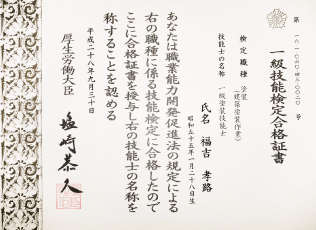 第 一六-一-〇七〇-四三-〇〇〇二〇 号
一級技能検定合格証書
検定職種 塗装
（建築塗装作業）
技能士の名称 一級塗装技能士
氏名 福吉 孝路
昭和五十五年一月二十八日生
あなたは職業能力開発促進法の規定による
右の職種に係る技能検定に合格したので
ここに合格証書を授与し右の技能士の名称を
称することを認める
平成二十八年九月三十日
厚生労働大臣 塩崎恭久